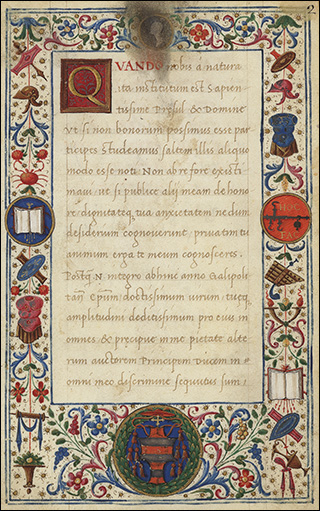 QVANDO nobis á natura
ita institutum est Sapien
tissime Presul & Domine
Vt si non bonorum possimus esse par
ticipes studeamus saltem illis aliquo
modo esse noti Non ab re fore existi
maui ut si publice alij meam de hono
re dignitateq tua anxietatem nedum
desiderium cognouerint priuatim tu
animum erga te meum cognosceres.
Postq N integro abhinc anno Galipoli
tan epum doctissimum uirum tueq
amplitudini deditissimum pro eius in
omnes & precipue in me pietate alte
rum auctorem Principem Ducem in
omni meo discrimine sequutus sum
HOC
FAC